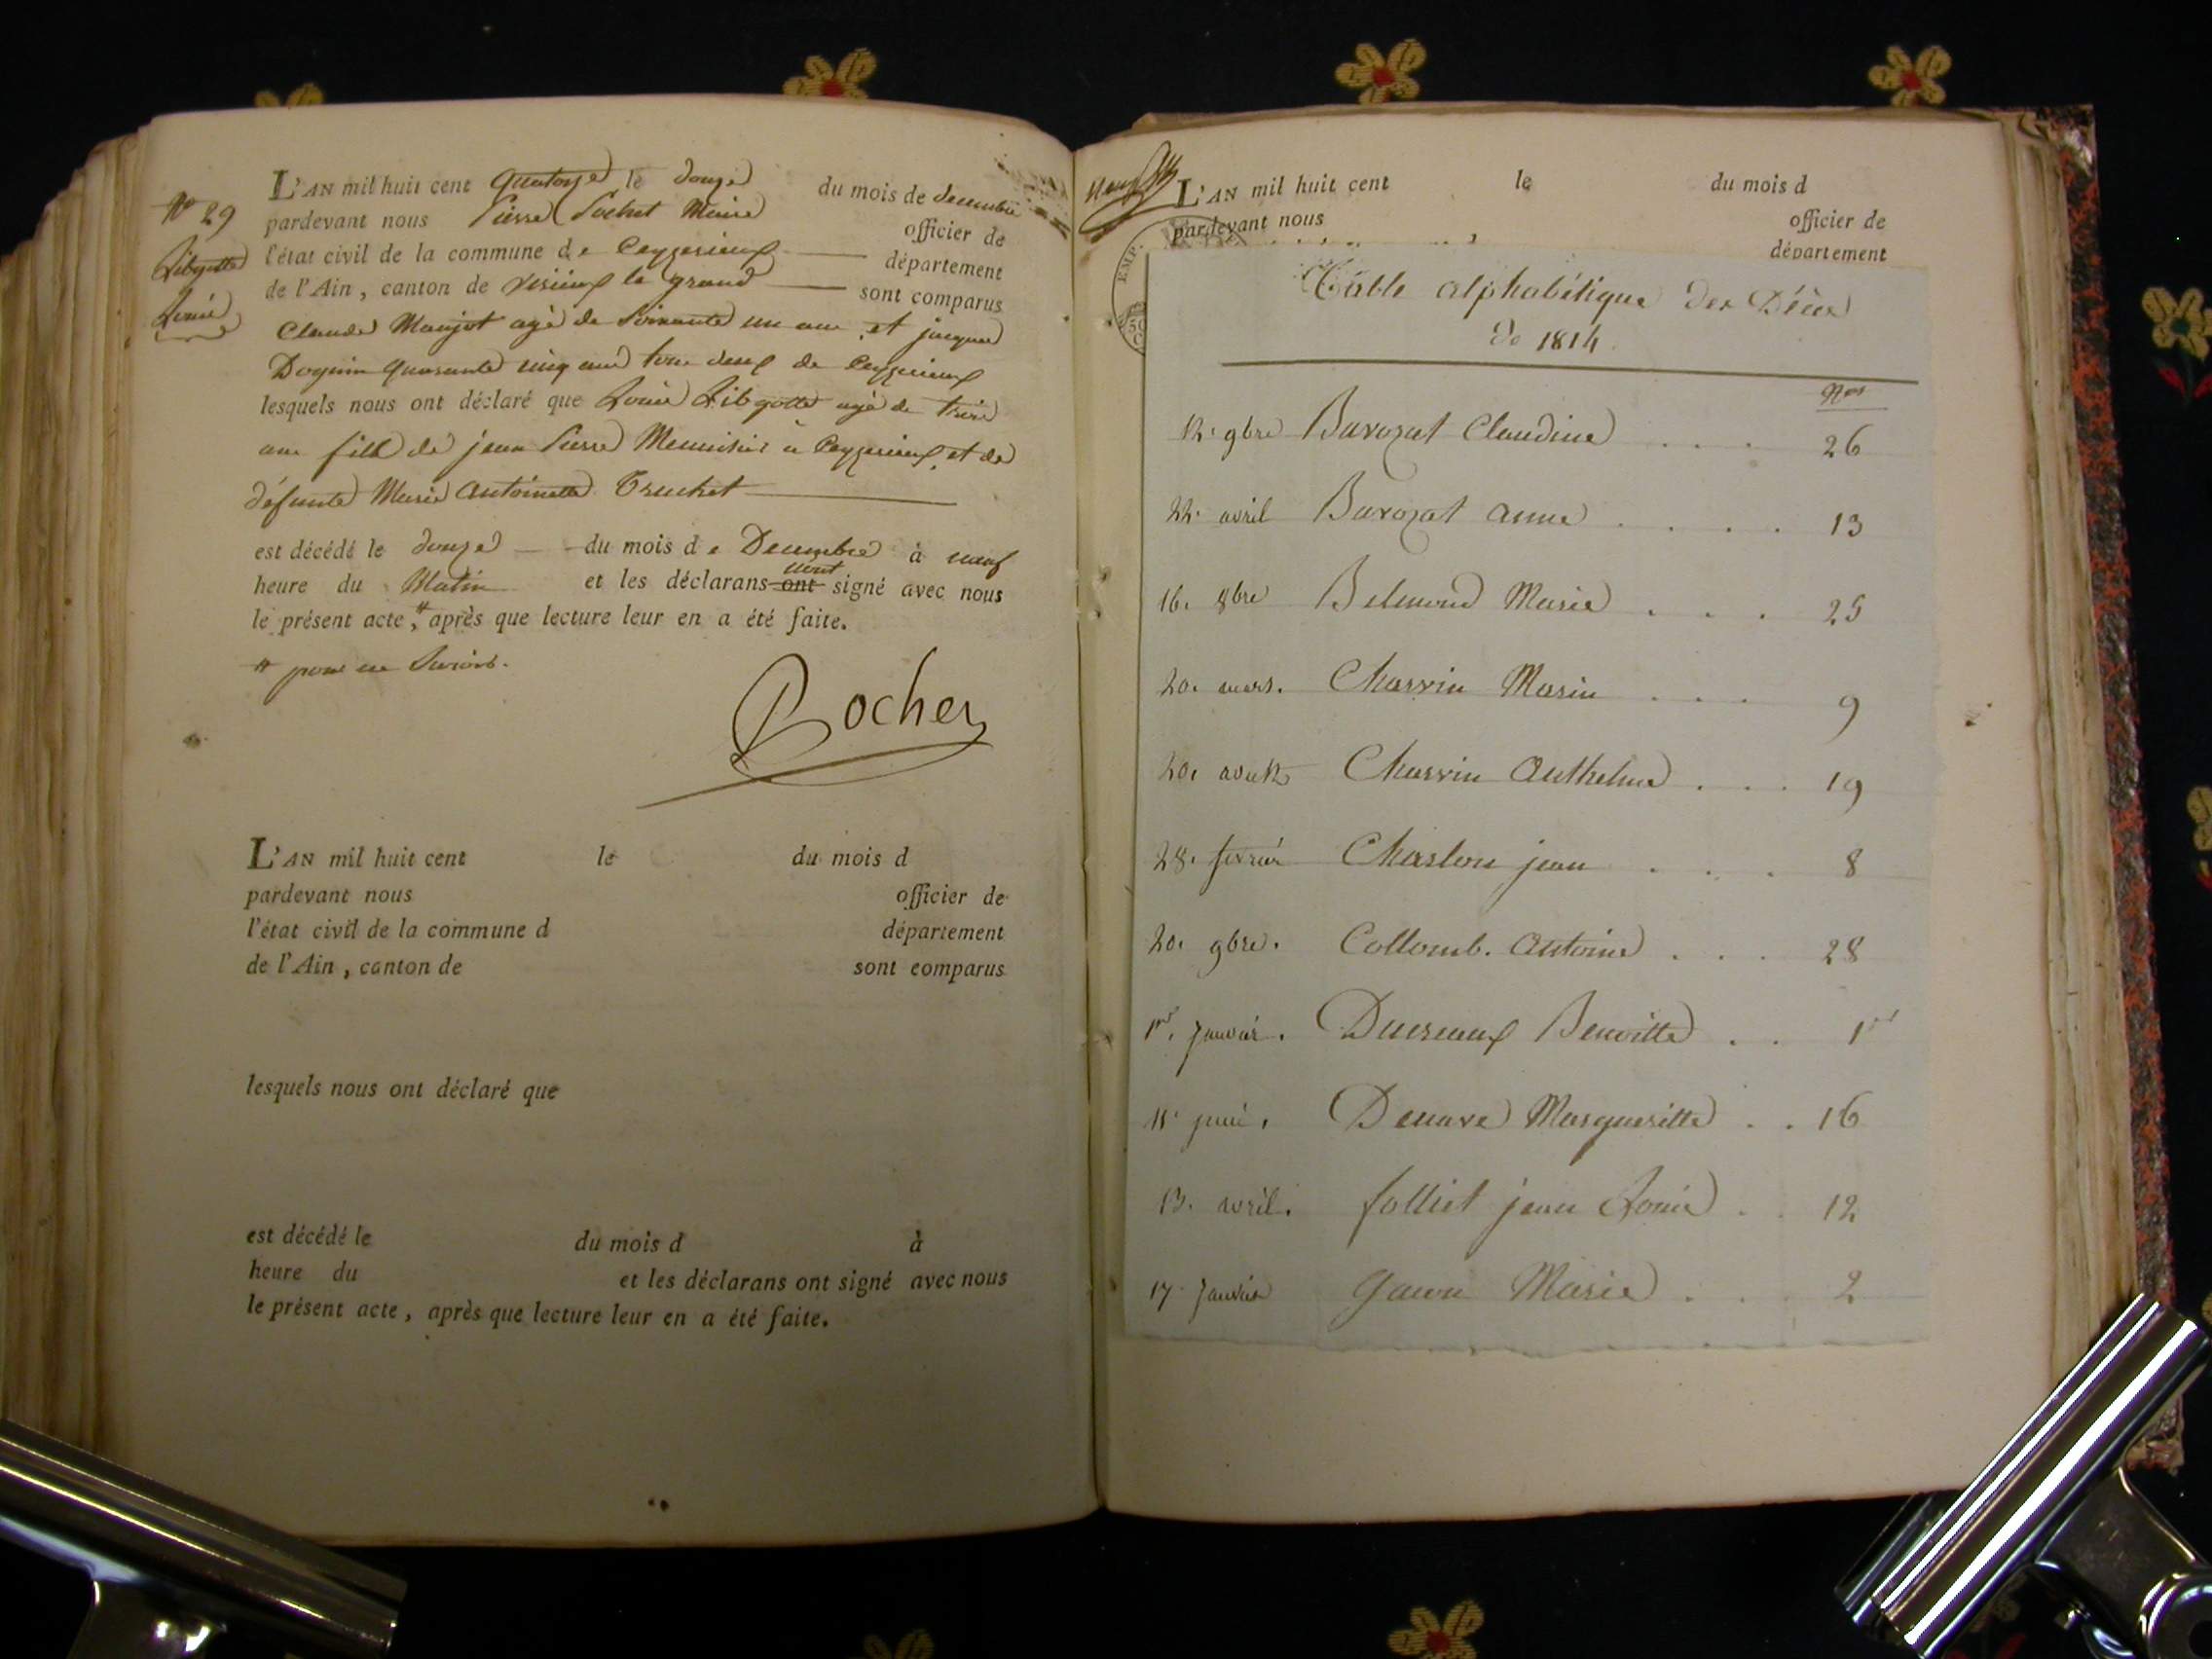 L'AN mil huit cent quatorze le douze du mois de decembre
N° 29
pardevant nous Pierre Pochet Maire officier de
l'état civil de la commune de Ceyzerieux département
Louise
de l'Ain, canton de virieux le grand sont comparus
Claude Manjot agé de soixante un ans et jacques
Doguin quarante cinq ans tous deux de Ceyzerieux
lesquels nous ont déclaré que Louise agé de treize
ans fille de jean Pierre Menuisier a Ceyzerieux et de
défunte Marie Antoinette Truchet
est décédé le douze du mois de Decembre à neuf
n'ont
heure du Matin et les déclarans ont signé avec nous
le présent acte, # après que lecture leur en a été faite.
# pour ne savoir.
L'AN mil huit cent le du mois d
pardevant nous officier de
l'état civil de la commune d département
de l'Ain, canton de sont comparus
lesquels nous ont déclaré que
est décédé le du mois d à
heure du et les déclarans ont signé avec nous
le présent acte, après que lecture leur en a été faite.
L'AN mil huit cent le du mois d
pardevant nous officier de
département
EMP.
50
Table alphabétique des Décès
de 1814
Nos
12. 9bre Barozat Claudine . . . 26
22. avril Barozat anne . . . . 13
16. 8bre Belmond Marie . . . 25
20. mars. Charvin Marin . . . 9
20. aoust Charvin Anthelme . . . 19
28. fevrier Charlon jean . . . 8
20. 9bre. Collomb. Antoine . . . 28
1er. Janvier. Benoitte . . 1er
11 juin. Margueritte . . 16
13. avril. folliet jean Louis . . 12
17. Janvier Marie . . . 2